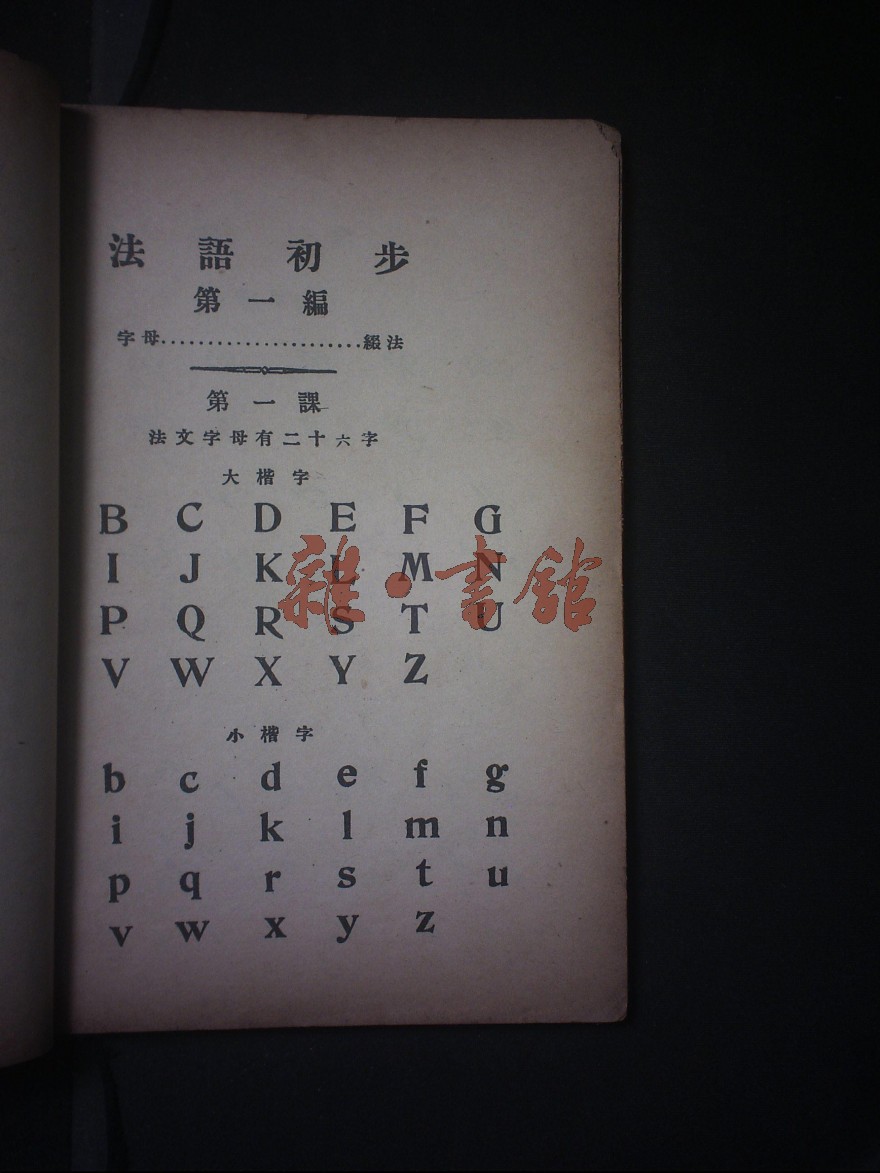 法語初步
第一編
字母.....................綴法
第一課
法文字母有二十六字
大楷字
B C D E F G
I J K L M N
P Q R S T U
V W X Y Z
雜·書館
小楷字
b c d e f g
i j k l m n
p q r s t u
v w x y z